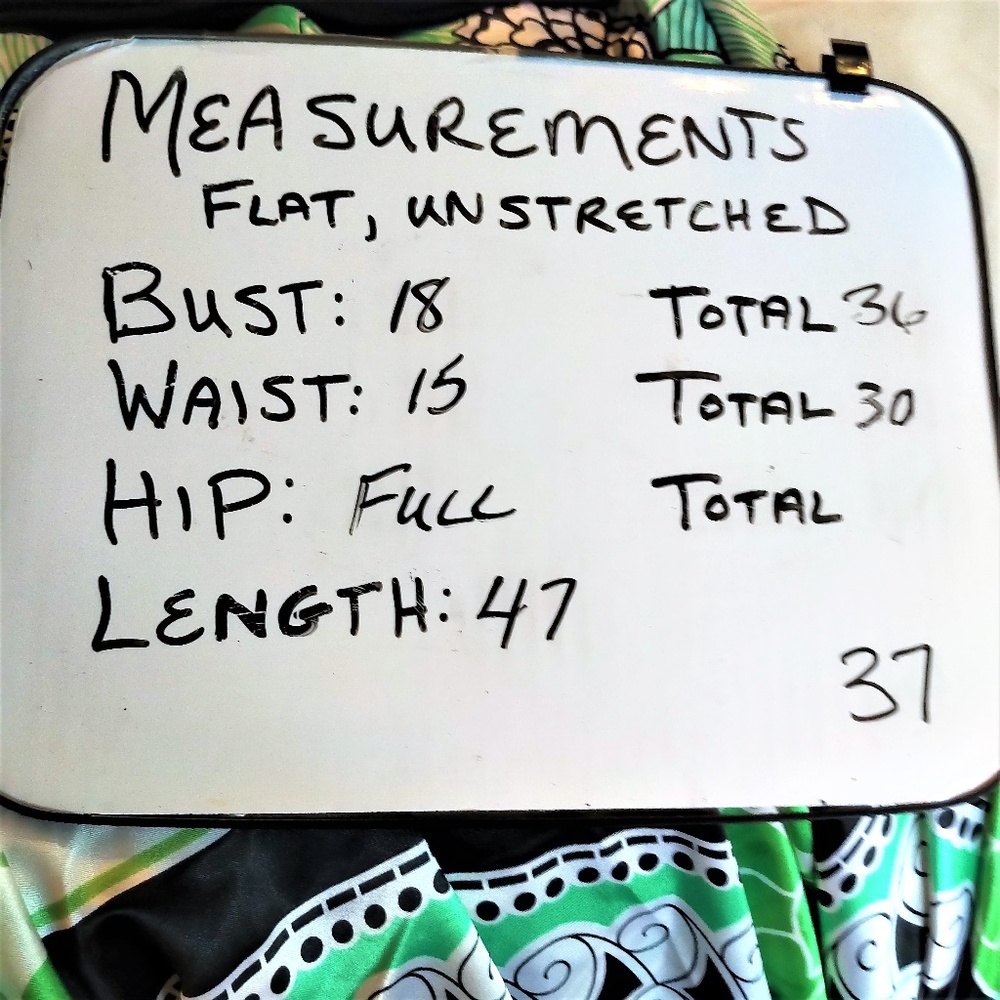 MEASUREMENTS
FLAT, UNSTRETCHED
BUST: 18 TOTAL 36
WAIST: 15 TOTAL 30
HIP: FULL TOTAL
LENGTH: 47
37